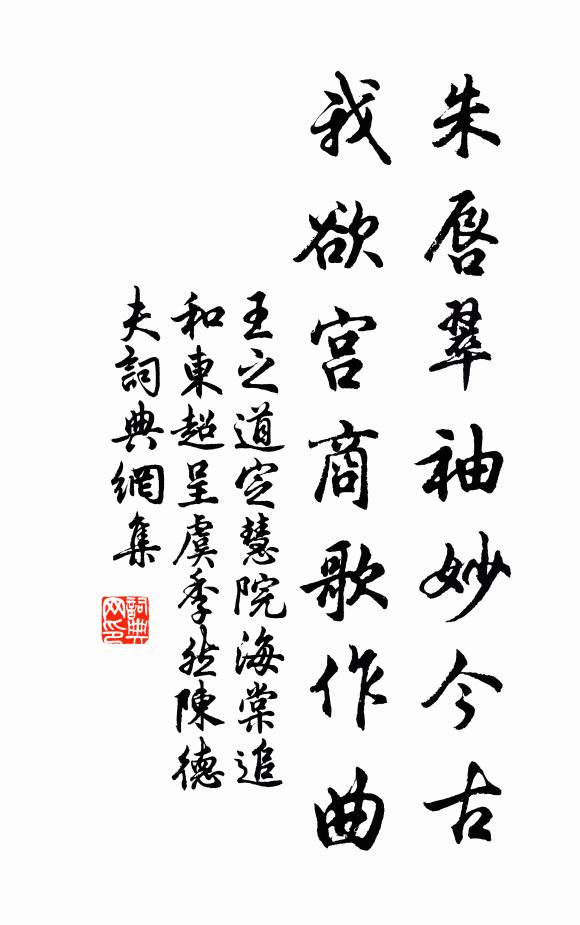 朱唇翠袖妙今古
我欲宫商歌作曲
王之道定慧院海棠追
和東超呈虞季然陳德
夫詞典網集
詞典
网印